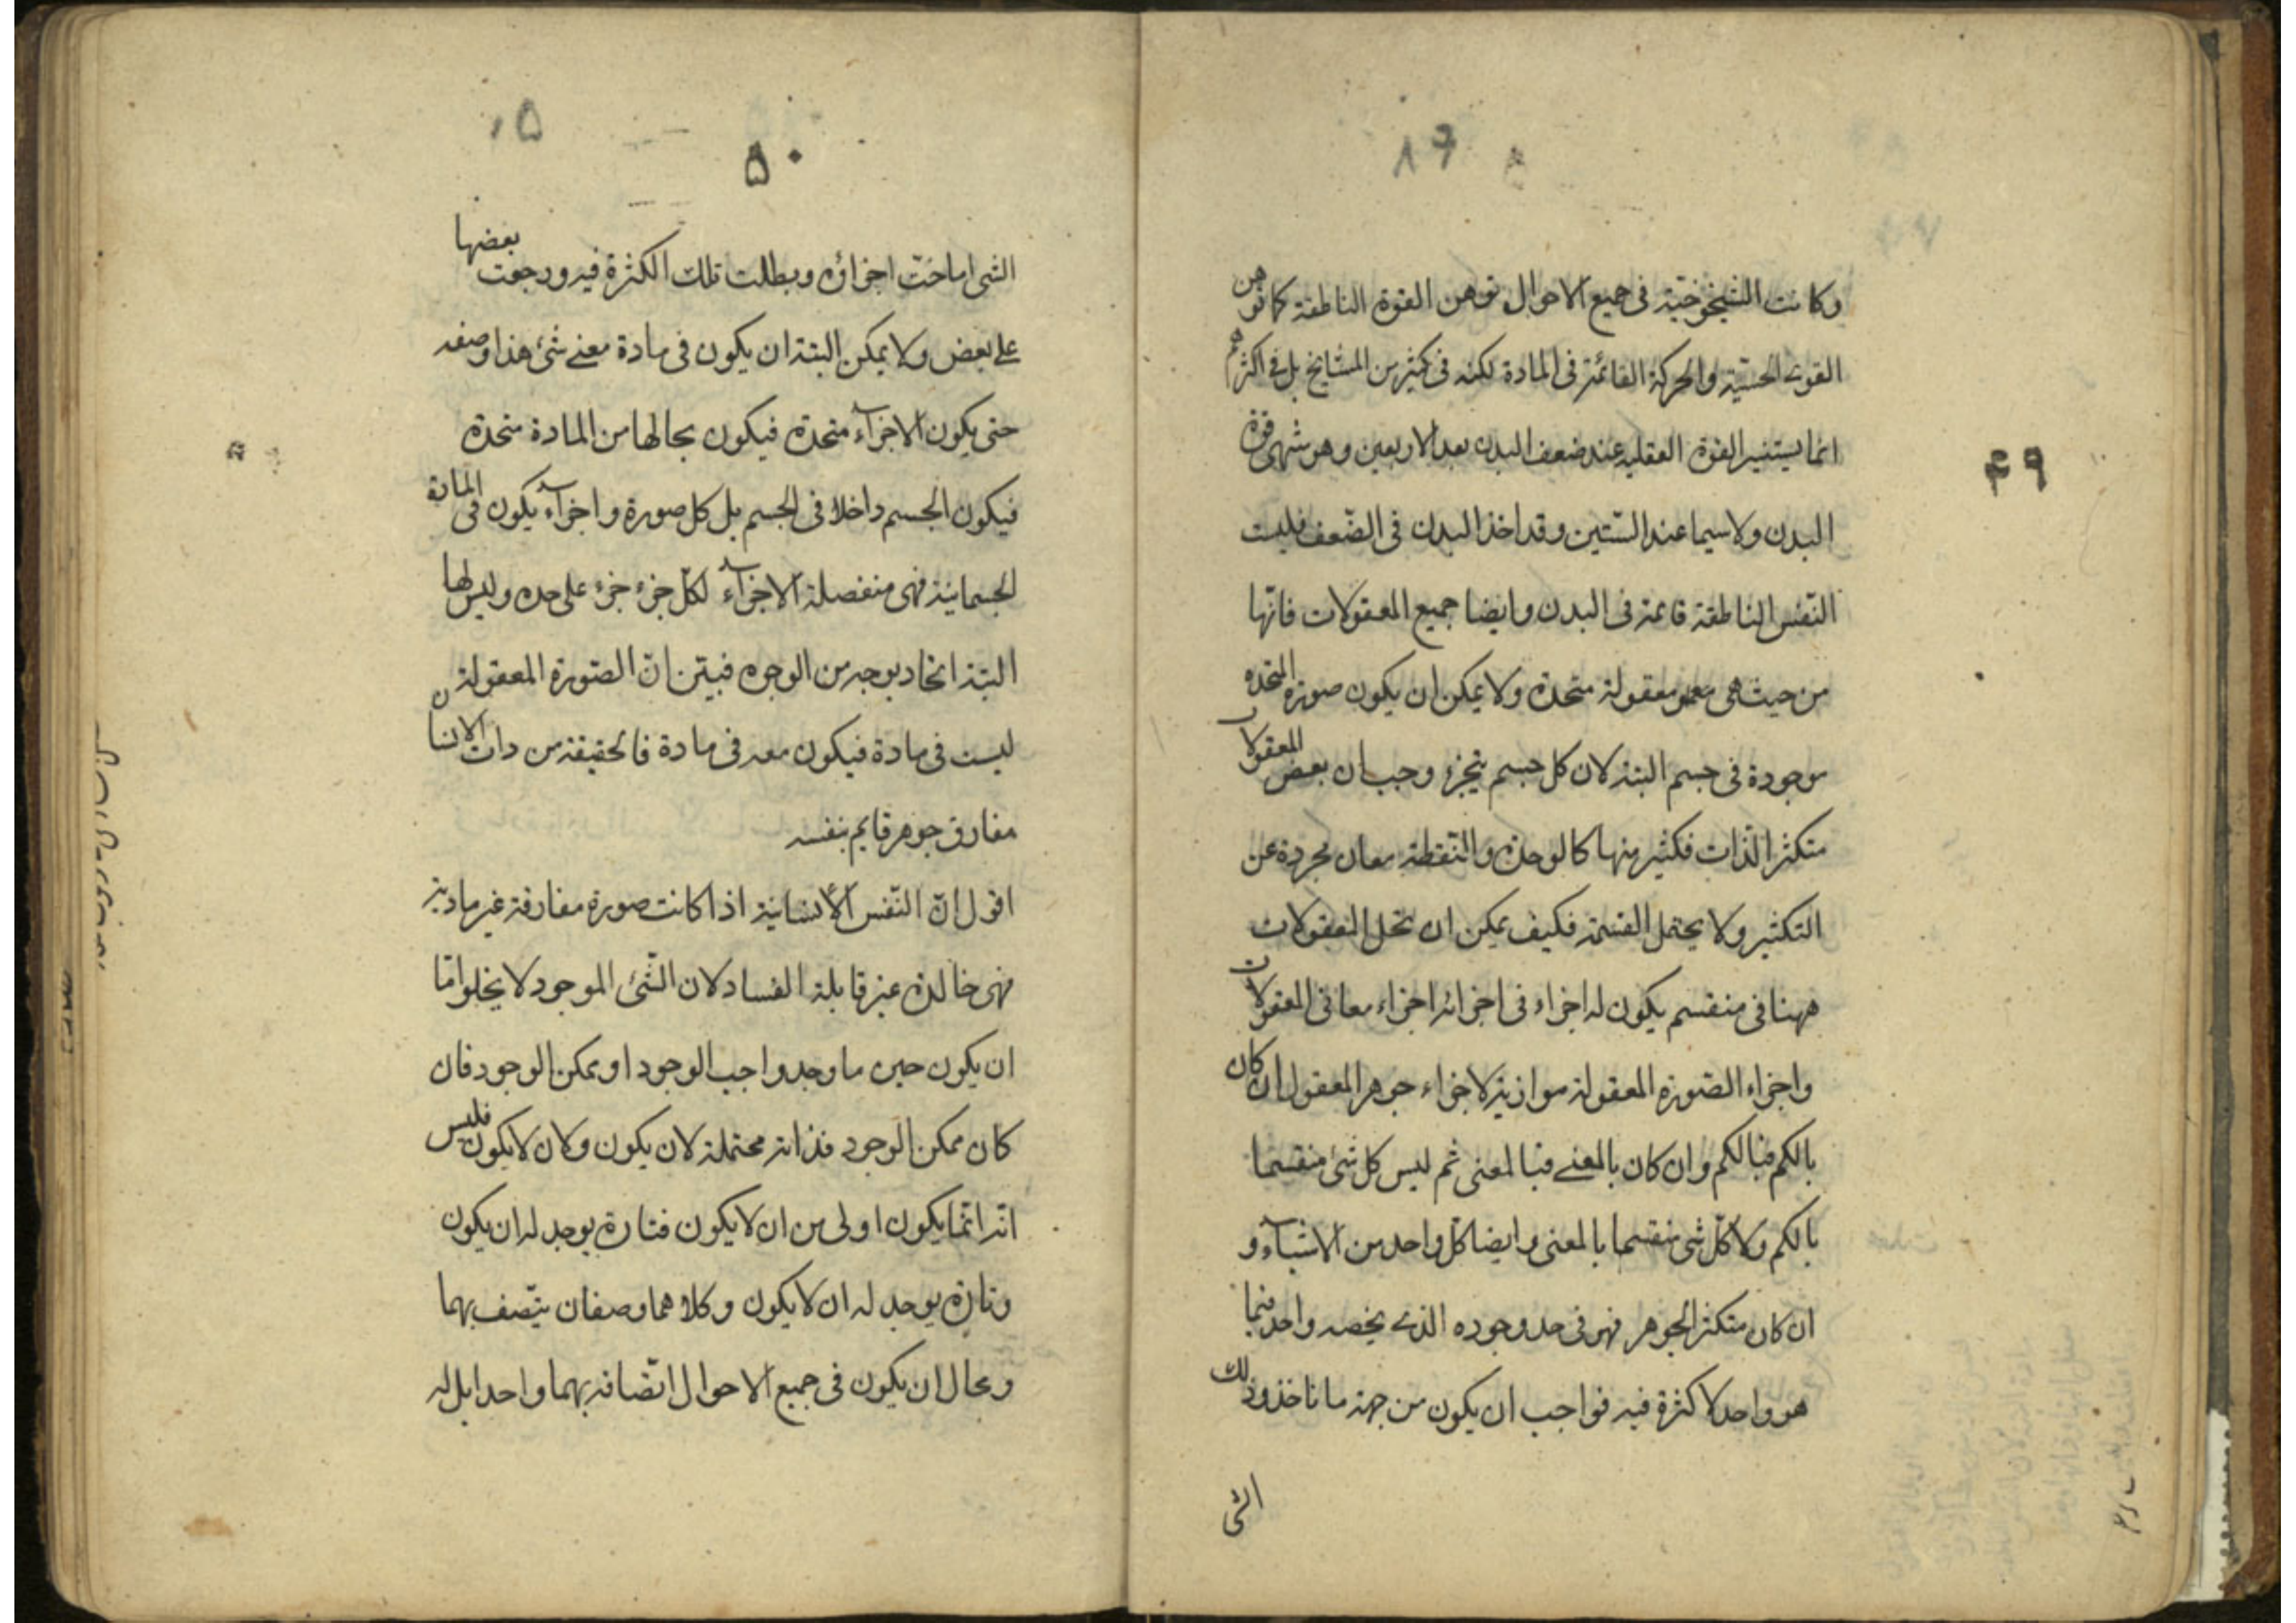 وكانت الشيخوخية فى جميع الاحوال توهن القوة الناطقة كما توهن
القوى الحسية والحركة القائمة فى المادة لكنه فى كثير من المشايخ بل فى اكثرهم
انما يستنير القوة العقلية عند ضعف البدن بعد الاربعين وهو منتهى قوة
البدن ولا سيما عند الستين وقد اخذ البدن فى الضعف فليست
النفس الناطقة قائمة فى البدن وايضا جميع المعقولات فانها
من حيث هى معقولة متحدة ولا يمكن ان يكون صورة المتحدة
موجودة فى جسم البتة لان كل جسم يتجزء وجب ان بعض المعقولات
متكثر الذات فكثير منها كالوحدة والنقطة معان مجردة عن
التكثير ولا يحتمل القسمة فكيف يمكن ان تحل المعقولات
ههنا فى منقسم يكون له اجزاء فى اجزائه اجزاء معا فى المعقولات
واجزاء الصورة المعقولة موازية لاجزاء جوهر المعقول ان كان
بالكم فبالكم وان كان بالمعنى فبالمعنى ثم ليس كل شئ منقسما
بالكم ولا كل شئ منقسما بالمعنى وايضا كل واحد من الاشياء و
ان كان متكثر الجوهر فهو فى حد وجوده الذى يخصه واحد فبما
هو واحد لا كثرة فيه فواجب ان يكون من جهة ما تاخذ وذلك
الشى
۴۹
۵۰
الشى اماحت اجزاؤه وبطلت تلك الكثرة فيه ورجعت بعضها
على بعض ولا يمكن البتة ان يكون فى مادة معنى شئ هذا وصفه
حتى يكون الاجزاء متحدة فيكون بحالها من المادة متحدة
فيكون الجسم داخلا فى الجسم بل كل صورة واجزاء يكون فى المادة
الجسمانية فهى منفصلة الاجزاء لكل جزء جزء على حده وليس لها
البتة اتحاد بوجه من الوجوه فبيّن ان الصورة المعقولة
ليست فى مادة فيكون معه فى مادة فالحقيقة من ذات الانسان
مفارق جوهر قايم بنفسه
اقول ان النفس الانسانية اذا كانت صورة مفارقة غير مادية
فهى خالدة غير قابلة الفساد لان الشئ الموجود لا يخلو امّا
ان يكون حين ما وجد واجب الوجود او ممكن الوجود فان
كان ممكن الوجود فذاته محتملة لان يكون ولان لا يكون فليس
انه انما يكون اولى من ان لا يكون فتارة يوجد له ان يكون
وتارة يوجد له ان لا يكون وكلاهما وصفان يتصف بهما
ومحال ان يكون فى جميع الاحوال اتصافه بهما واحدا بل له